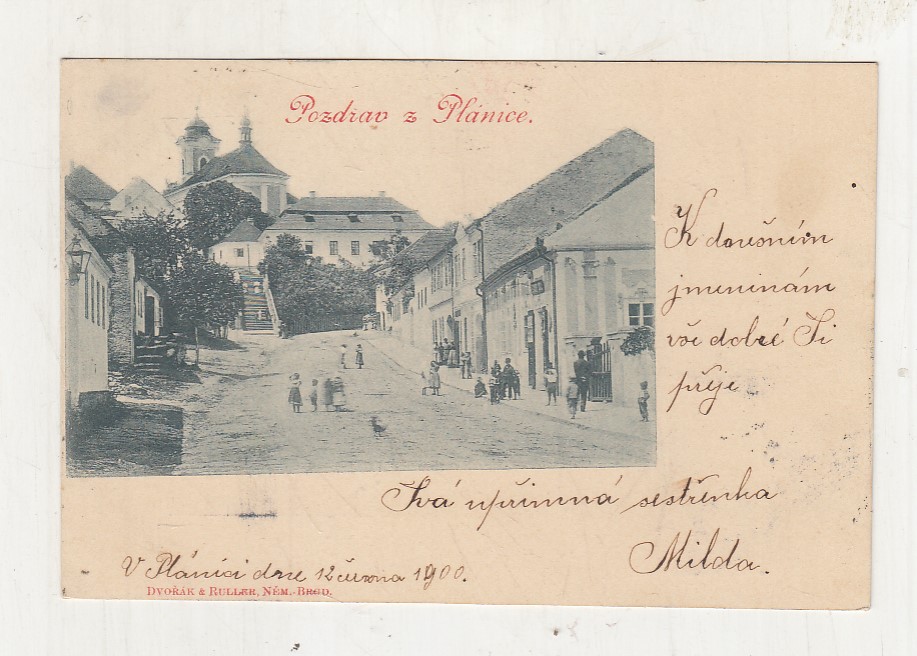 Pozdrav z Plánice.
K dnešním
jmeninám
vše dobré Ti
přeje
Tvá upřimná sestřenka
Milda.
V Plánici dne 12 června 1900.
DVOŘÁK & RULLER, NĚM.-BROD.